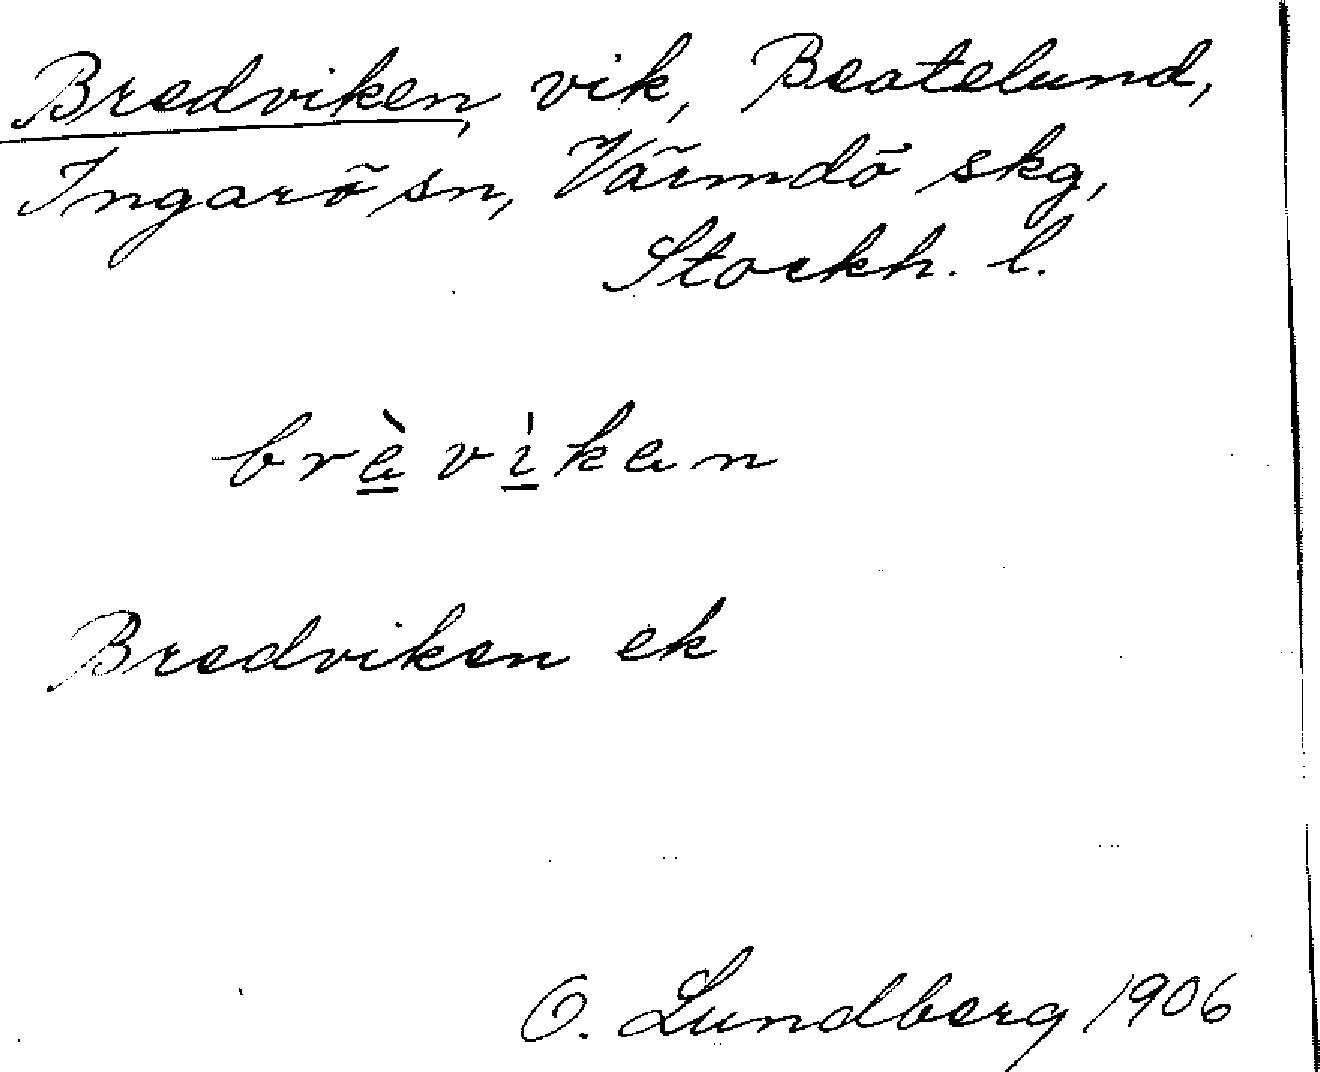 Bredviken, vik, Beatelund,
Ingarö sn, Värmdö skg,
Stockh. l.
brèvìken
Bredviken ek
O. Lundberg 1906